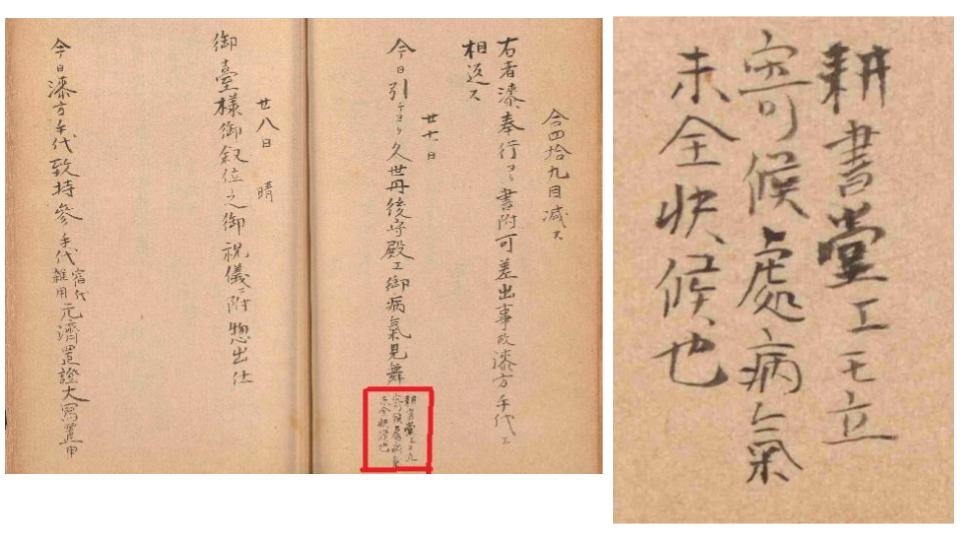 合四拾九目減ス
右者漆奉行ヨリ書附可差出事故漆方手代ニ
相返ス
廿七日
今日引ケヨリ久世丹後守殿エ御病氣見舞
耕書堂エモ立
寄可候處病氣
未全快候也
廿八日 晴
御臺様御叙位之御祝儀ニ附惣出仕
今日漆方手代致持參手代
宿代
雑用
元濟置證大寫置申
耕書堂エモ立
寄可候處病氣
未全快候也